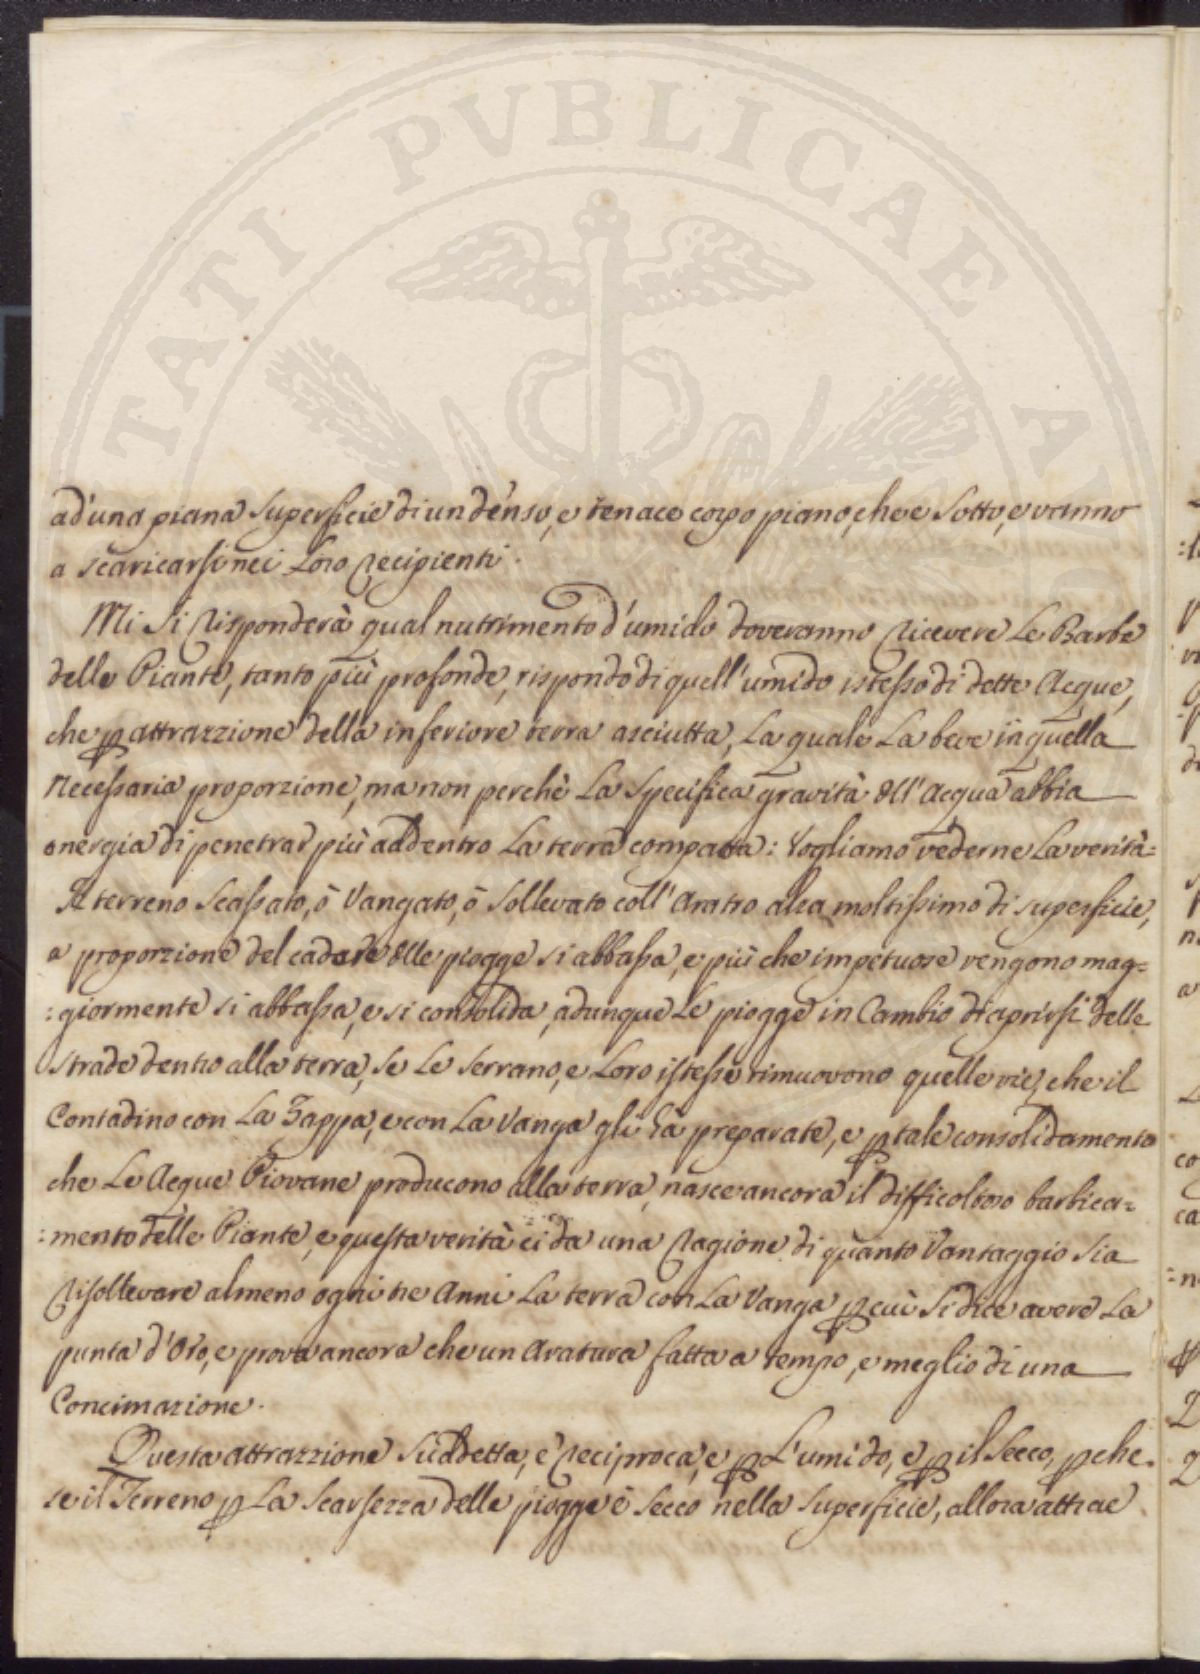 TATI PVBLICAE
ad'una piana superficie di un denso, e tenace corpo piano, che è sotto, e vanno
a scaricarsi nei Loro recipienti.
Mi si risponderà qual nutrimento d'umido doveranno ricevere Le Barbe
delle Piante, tanto più profonde, rispondo di quell'umido istesso di dette Acque,
che p attrazzione della inferiore terra asciutta, La quale La beve in quella
necessaria proporzione, ma non perchè La specifica gravità dll'Acqua abbia
energia di penetrar più addentro La terra compatta: Vogliamo vederne La verità=
Il terreno scassato, ò Vangato, ò sollevato coll'Aratro alza moltissimo di superficie,
a proporzione del cadere dlle piogge si abbassa, e più che impetuose vengono mag=
:giormente si abbassa, e si consolida, adunque Le piogge in Cambio di aprirsi delle
strade dentro alla terra, se Le serrano, e Loro istesse rimuovono quelle vie, che il
Contadino con La Zappa, e con La Vanga gli hà preparate, e p tale consolidamento
che Le Acque Piovane producono alla terra, nasce ancora il difficoltoso barbica=
:mento delle Piante, e questa verità ci da una ragione di quanto Vantaggio sia
risollevare almeno ogni tre Anni La terra con La Vanga p cui si dice avere La
punta d'Oro, e prova ancora che un Aratura fatta a tempo, e meglio di una
Concimazione.
Questa attrazzione suddetta, è reciproca, e p L'umido, e p il secco, pche
se il Terreno p La scarsezza delle piogge è secco nella superficie, allora attrae